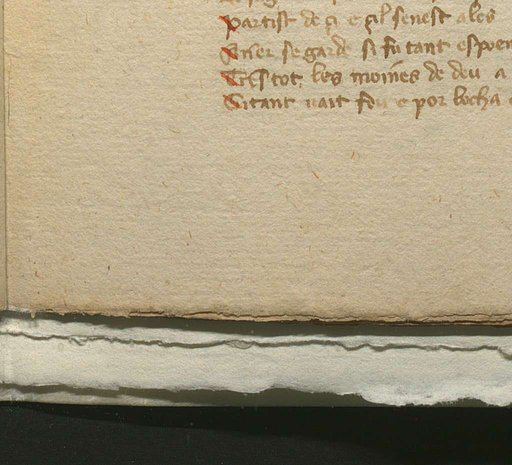 Partist de çi e çil senest ales
Arier se garde si fu tant espoen
Tristot les moines de deu a
Sitant uait fou e por locha